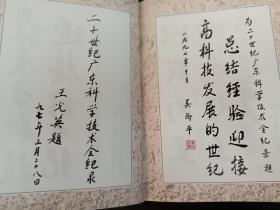 为二十世纪广东科学技术全纪录题
总结经验迎接
高科技发展的世纪
一九九七年十月 吴阶平
二十世纪广东科学技术全纪录
王光英题
九七年三月二十八日